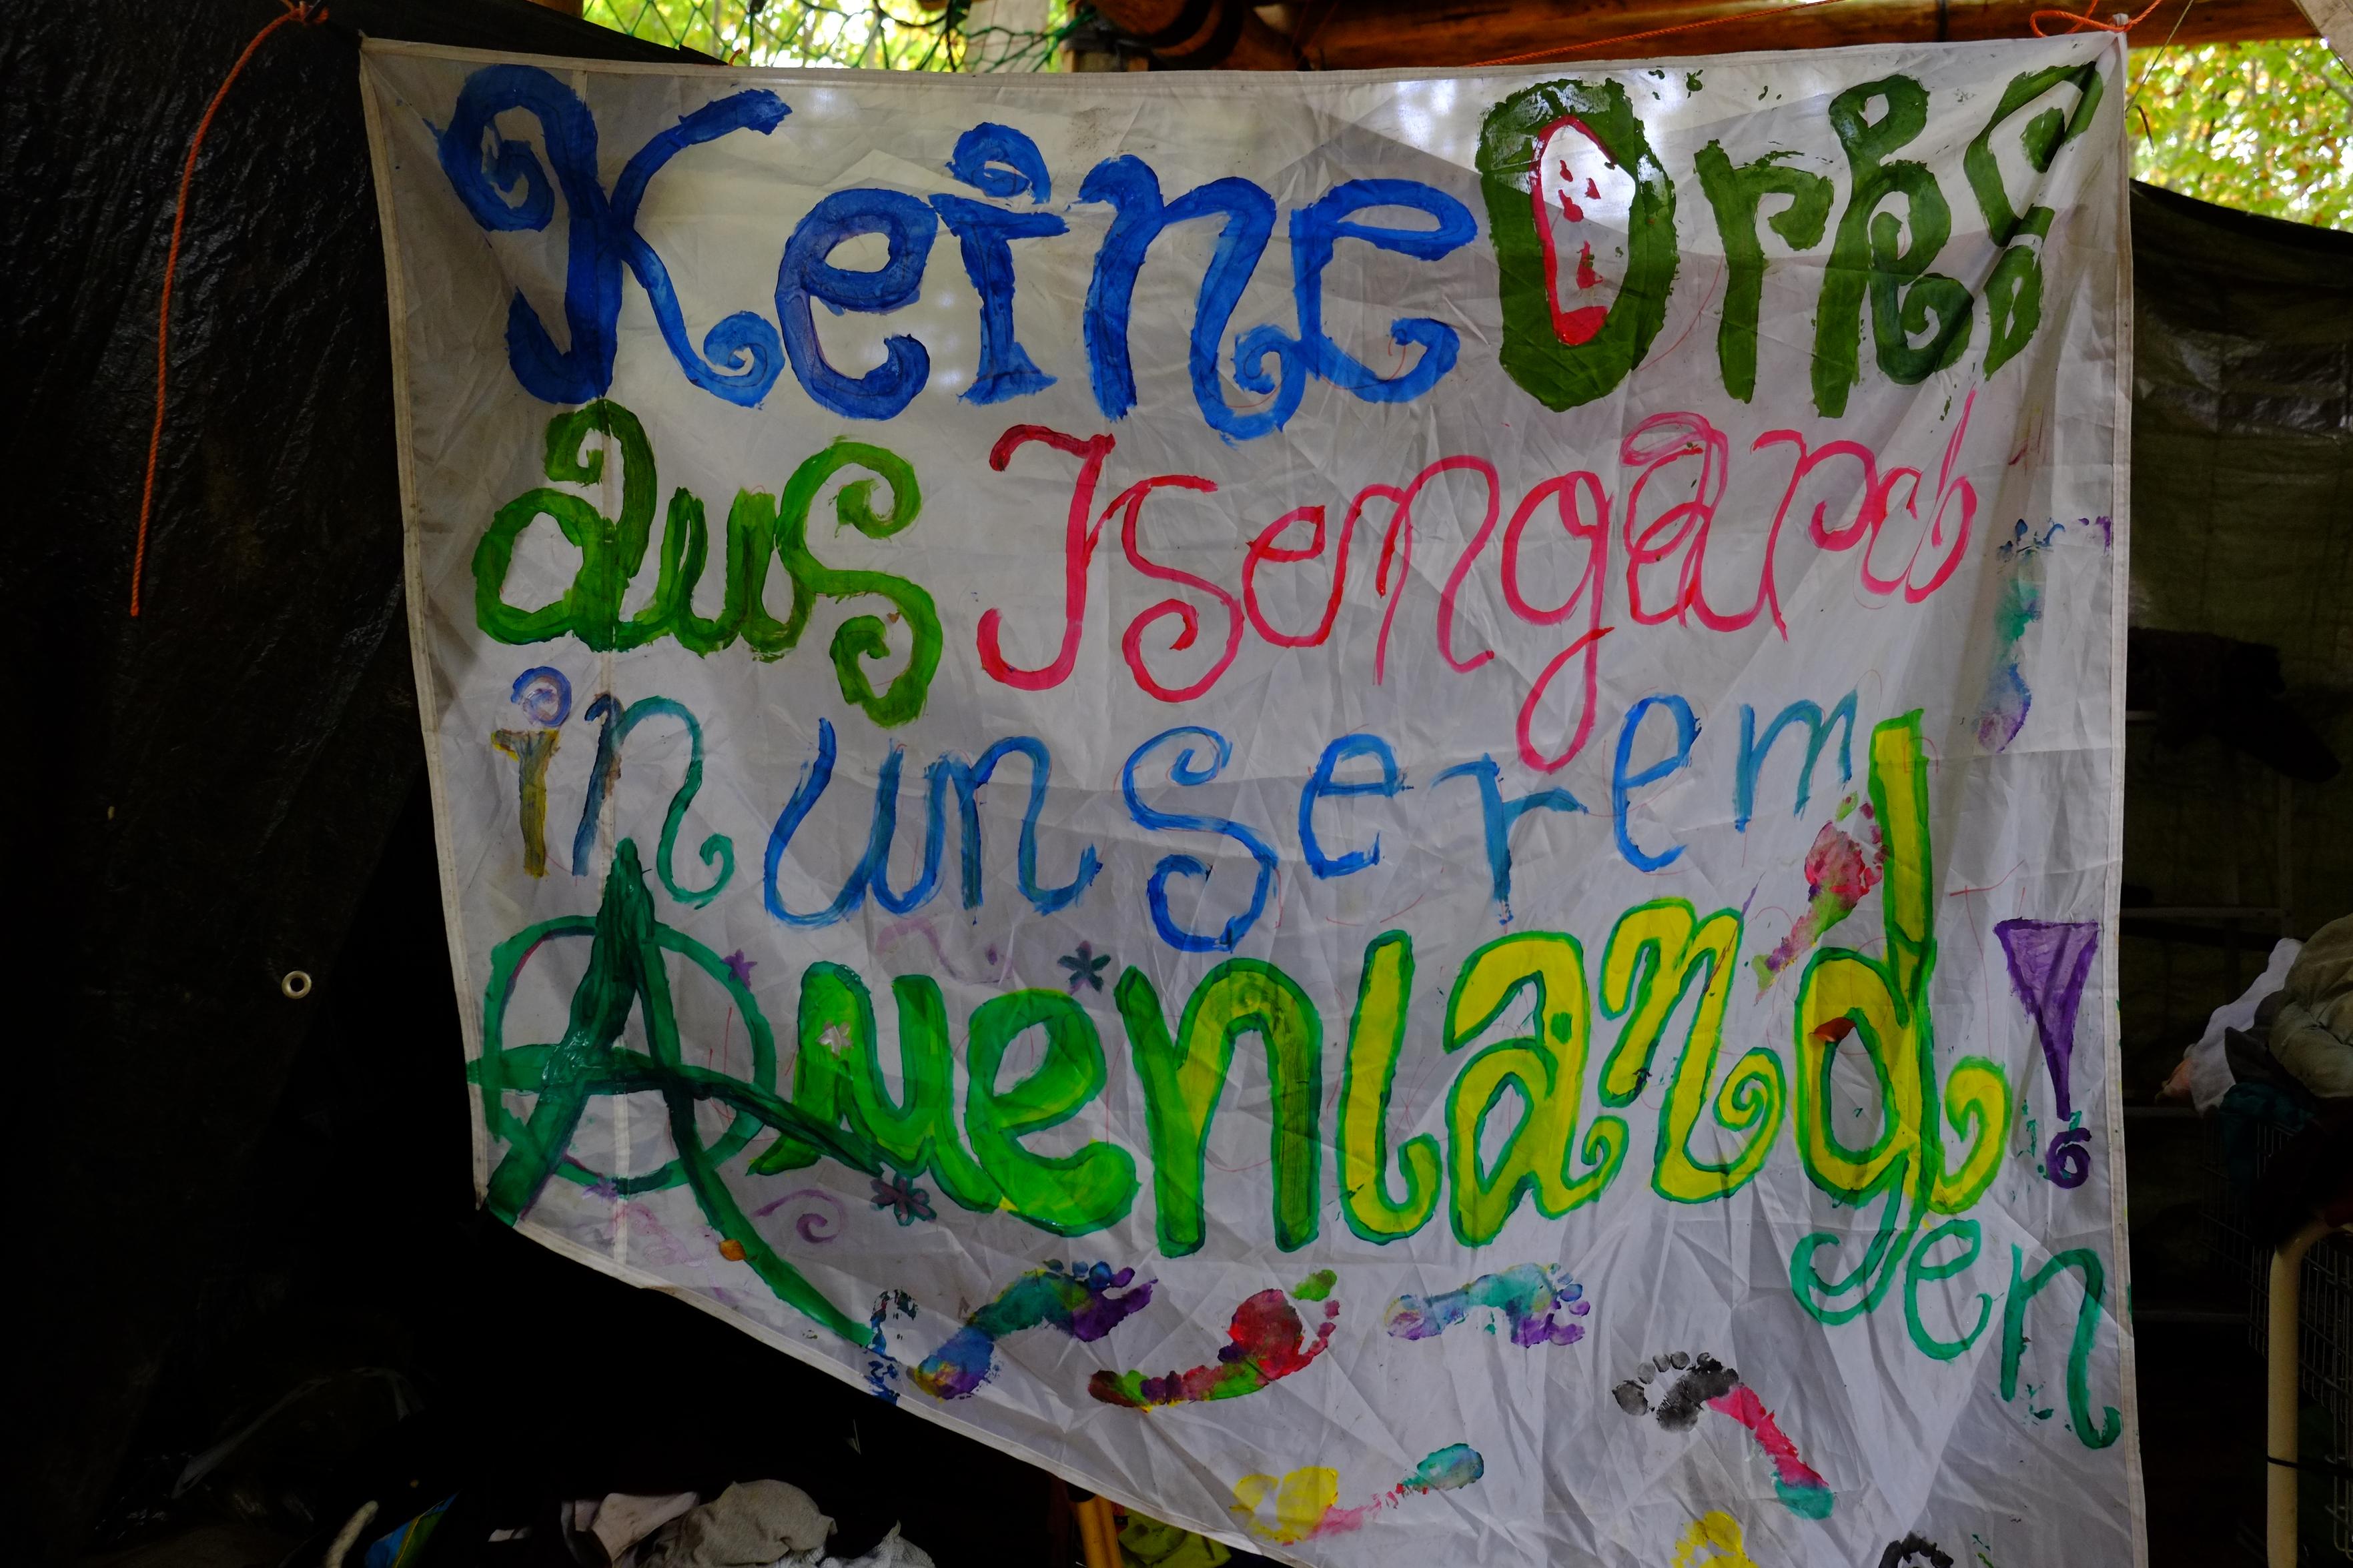 Keine Orks
aus Isengard
in unserem
Auenland!
gen